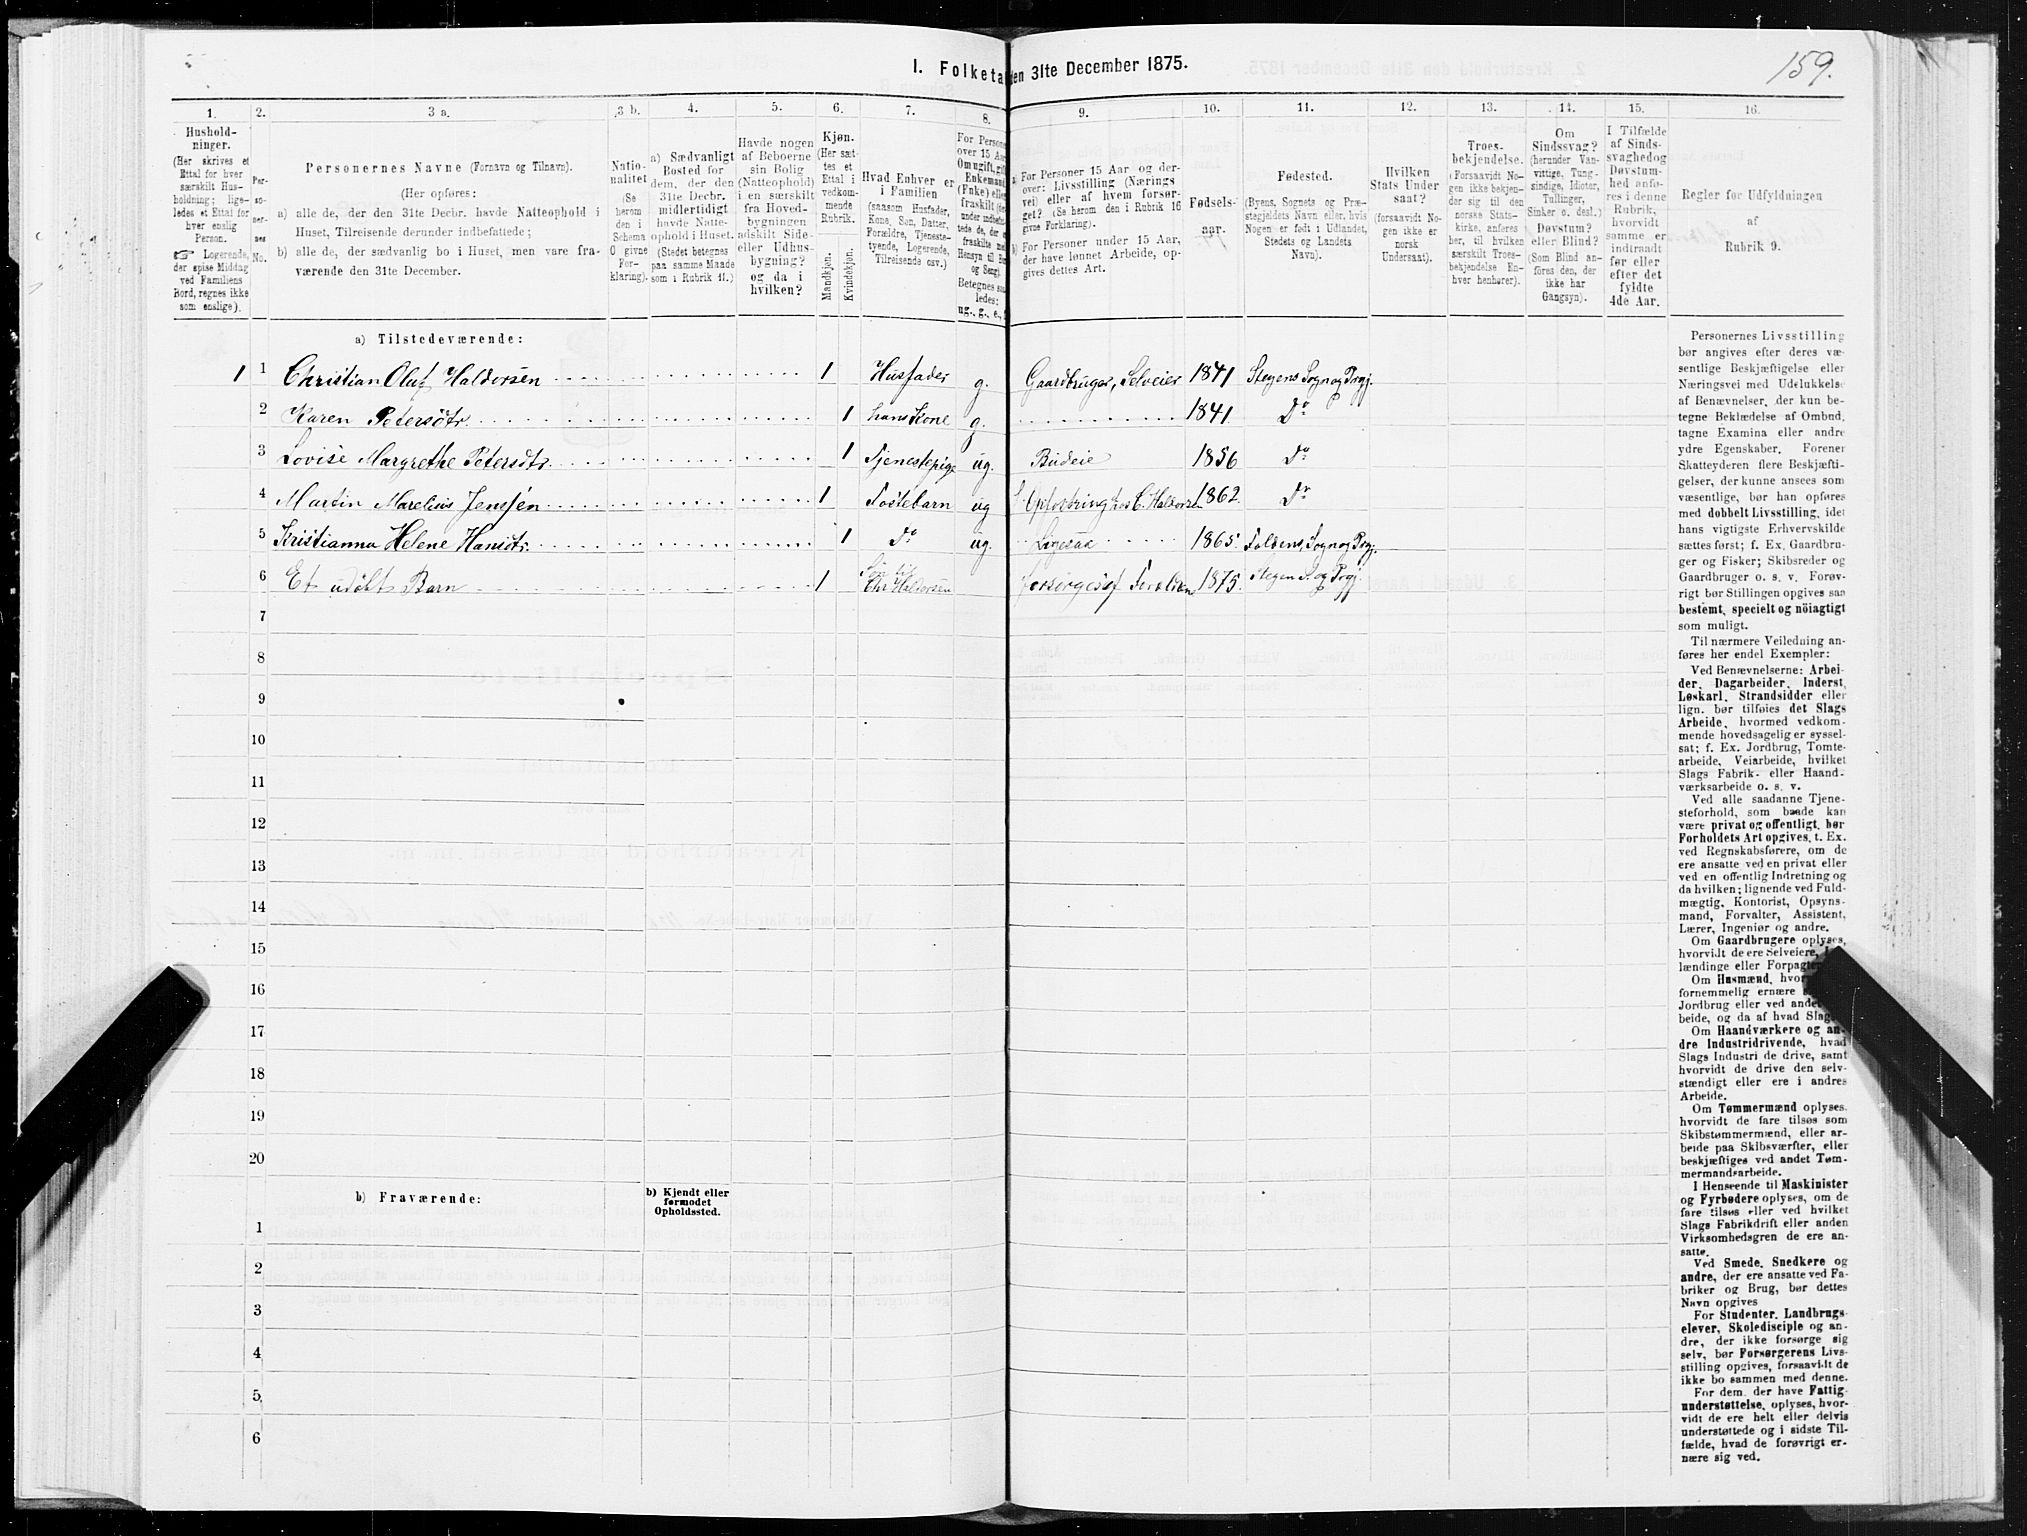 159.
1. Folketal den 31te December 1875.
1. 2. 3 a. 3 b. 4. 5. 6. 7. 8. 9. 10. 11. 12. 13. 14. 15. 16.
Hushold-
ninger.
(Her skrives et
Ettal for hver
særskilt Hus-
holdning; lige-
ledes et Ettal for
hver enslig
Person.
☞ Logerende,
der spise Middag
ved Familiens
Bord, regnes ikke
som enslige).
Per-
so-
ner-
nes
No.
Personernes Navne (Fornavn og Tilnavn).
(Her opføres:
a) alle de, der den 31te Decbr. havde Natteophold i
Huset, Tilreisende derunder indbefattede;
b) alle de, der sædvanlig bo i Huset, men vare fra-
værende den 31te December.
Natio-
nalitet
(Se
herom
den i
Schema
O givne
For-
klaring).
a) Sædvanligt
Bosted for
dem, der den
31te Decbr.
midlertidigt
havde Natte-
ophold i Huset.
(Stedet betegnes
paa samme Maade
som i Rubrik 11.)
Havde nogen
af Beboerne
sin Bolig
(Natteophold)
i en særskilt
fra Hoved-
bygningen
adskilt Side-
eller Udhus-
bygning?
og da i
hvilken?
Kjøn.
(Her sæt-
tes et
Ettal i
vedkom-
mende
Rubrik.
Mandkjøn.
Kvindekjøn.
Hvad Enhver er
i Familien
(saasom Husfader,
Kone, Søn, Datter,
Forældre, Tjeneste-
tyende, Logerende,
Tilreisende osv.)
For Persone
over 15 Aar
Om ugift, gift
Enkemand
(Enke) eller
fraskilt
Betegnes saa
ledes:
ug., g., e.,
a) For Personer 15 Aar og der-
over: Livsstilling (Nærings
vei) eller af hvem forsør-
get? (Se herom den i Rubrik 16
givne Forklaring).
b) For Personer under 15 Aar,
der have lønnet Arbeide, op-
gives dettes Art.
Fødsels-
aar.
Fødested.
(Byens, Sognets og Præ-
stegjeldets Navn eller, hvis
Nogen er født i Udlandet,
Stedets og Landets
Navn).
Hvilken
Stats Under
saat?
(forsaavidt No-
gen ikke er
norsk
Undersaat).
Troes-
bekjendelse.
(Forsaavidt No-
gen ikke bekjen-
der sig til den
norske Stats-
kirke, anføres
her, til hvilken
særskilt Troes-
bekjendelse En-
hver henhører).
Om
Sindssvag?
(herunder Van-
vittige, Tung-
sindige, Idioter,
Tullinger,
Sinker o. desl.)
Døvstum?
eller Blind?
(Som Blind an-
føres den, der
ikke har
Gangsyn).
I Tilfælde
af Sinds-
svaghedog
Døvstum-
hed anfø-
res i denne
Rubrik,
hvorvidt
samme er
indtraadt
før eller
efter det
fyldte
4de Aar.
Regler for Udfyldningen
af
Rubrik 9.
a) Tilstedeværende:
1 1 Christian Oluf Haldorsen 1 Husfader g. Gaardbruger, Selveier 1841 Stegens Sogn og Prgj.
2 Karen Petersdtr. 1 hans Kone g. 1841. Do
3 Lovise Margrethe Petersdtr. 1 Tjenestepige ug. Budeie 1856 Do
4 Martin Marelius Jenssen 1 Fostebarn ug Opfostring hos C. Haldorsen 1862. Do
5 Kristianna Helene Hansdtr. 1 Do ug. Ligesaa 1865. Foldens Sogn og Prgj.
6 Et udöbt Barn 1 Søn til Chr Haldorsen forsørges af Forældrene 1875. Stegen S. og Prgj.
7
8
9
10
11
12
13
14
15
16
17
18
19
20
b) Fraværende:
b) Kjendt eller
formodet
Opholdssted.
1
2
3
4
5
6
Personernes Livsstilling
bør angives efter deres væ-
sentlige Beskjæftigelse eller
Næringsvei med Udelukkelse
af Benævnelser, der kun be-
tegne Beklædelse af Ombud,
tagne Examina eller andre
ydre Egenskaber. Forener
Skatteyderen flere Beskjæfti-
gelser, der kunne ansees som
væsentlige, bør han opføres
med dobbelt Livsstilling, idet
hans vigtigste Erhvervskilde
sættes først; f. Ex. Gaardbru-
ger og Fisker; Skibsreder og
Gaardbruger o. s. v. Forøv-
rigt bør Stillingen opgives saa
bestemt, specielt og nöiagtigt
som muligt.
Til nærmere Veiledning an-
føres her endel Exempler:
Ved Benævnelserne: Arbei-
der, Dagarbeider, Inderst,
Løskarl, Strandsidder eller
lign. bør tilføies det Slags
Arbeide, hvormed vedkom-
mende hovedsagelig er syssel-
sat; f. Ex. Jordbrug, Tomte-
arbeide, Veiarbeide, hvilket
Slags Fabrik- eller Haand-
værksarbeide o. s. v.
Ved alle saadanne Tjene-
steforhold, som baade kan
være privat og offentligt, bør
Forholdets Art opgives, t. Ex.
ved Regnskabsførere, om de
ere ansatte ved en privat eller
ved en offentlig Indretning og
da hvilken; lignende ved Fuld-
mægtig, Kontorist, Opsyns-
mand, Forvalter, Assistent,
Lærer, Ingeniør og andre.
Om Gaardbrugere oplyses,
hvorvidt de ere Selveiere,
lændinge eller Forpagtere
Om Husmænd,
fornemmelig ernære
Jordbrug eller ved andet
beide, og da af hvad Slags
Om Haandværkere og an-
dre Industridrivende, hvad
Slags Industri de drive, samt
hvorvidt de drive den selv-
stændigt eller ere i andres
Arbeide.
Om Tømmermænd oplyses,
hvorvidt de fare tilsøs som
Skibstømmermænd, eller ar-
beide paa Skibsværfter, eller
beskjæftiges ved andet Tøm-
mermandsarbeide.
I Henseende til Maskinister
og Fyrbødere oplyses, om de
fare tilsøs eller ved hvilket
Slags Fabrikdrift eller anden
Virksomhedsgren de ere an-
satte.
Ved Smede, Snedkere og
andre, der ere ansatte ved Fa-
briker og Brug, bør dettes
Navn opgives
For Studenter, Landbrugs-
elever, Skoledisciple og an-
dre, der ikke forsørge sig
selv, bør Forsørgerens Livs-
stilling opgives, forsaavidt de
ikke bo sammen med denne.
For dem, der have Fattig-
understøttelse, oplyses, hvor-
vidt de ere helt eller delvis
understøttede og i sidste Til-
fælde, hvad de forøvrigt er-
nære sig ved.